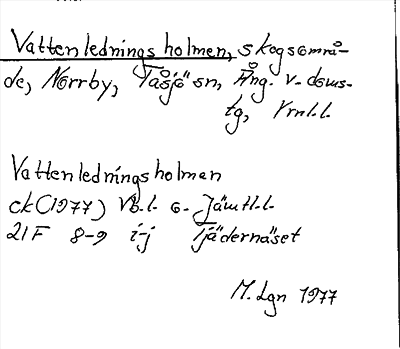 Vattenledningsholmen, skogsområ-
de, Norrby, Tåsjö sn, Ång. v. doms-
tg, Vrnl.l.
Vattenledningsholmen
ck (1977) Vb.l. o. Jämtl.l.
21F 8-9 i-j Tjädernäset
M. Lgn 1977